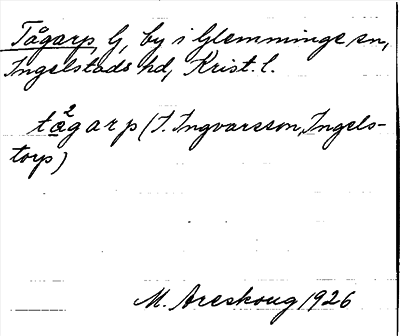 Tågarp, G, by i Glemminge sn,
Ingelstads hd, Krist. l.
tå²garp (T. Ingvarsson, Ingels-
torp)
M. Areskoug 1926